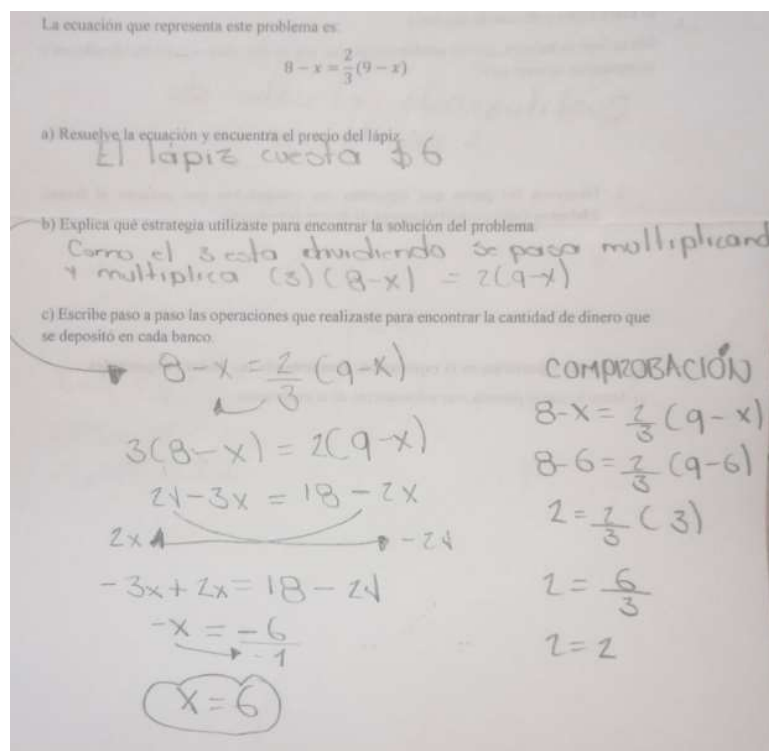 La ecuación que representa este problema es:
8 − x = 2/3 (9 − x)
a) Resuelve la ecuación y encuentra el precio del lápiz.
El lápiz cuesta $6
b) Explica qué estrategia utilizaste para encontrar la solución del problema
Como el 3 esta dividiendo se pasa multiplicand
y multiplica (3)(8-x) = 2(9-x)
c) Escribe paso a paso las operaciones que realizaste para encontrar la cantidad de dinero que
se depositó en cada banco.
8-x = 2/3 (9-x)
3(8-x) = 2(9-x)
24-3x = 18-2x
2x -24
-3x+2x=18-24
-x = -6/-1
x=6
COMPROBACIÓN
8-x = 2/3 (9-x)
8-6 = 2/3 (9-6)
2 = 2/3 (3)
2 = 6/3
2=2